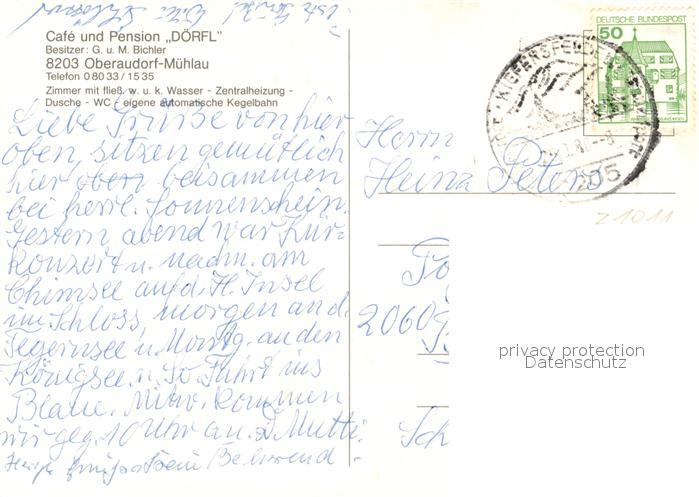 Café und Pension „DÖRFL"
Besitzer: G. u. M. Bichler
8203 Oberaudorf-Mühlau
Telefon 0 80 33 / 15 35
Zimmer mit fließ. w. u. k. Wasser - Zentralheizung -
Dusche - WC eigene automatische Kegelbahn
Liebe Grüße von hier
oben, sitzen gemütlich
hier oben beisammen
bei herrl. Sonnenschein.
Gestern abend war Kur=
konzert u. nachm. am
Chimsee auf d. H. Insel
im Schloss, morgen an d.
Tegernsee u. Montg. an den
Königsee, u. So. Fahrt ins
Blaue. Mittw. kommen
wir geg. 10 Uhr an. Mutti
DEUTSCHE BUNDESPOST
50
KIEFERSFELDEN
8205
Herrn
Heinz Peters
2060
Sch
Z 1011
privacy protection
Datenschutz